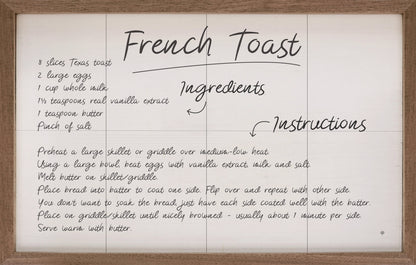 French Toast
8 slices Texas toast
2 large eggs
1 cup whole milk
1½ teaspoons real vanilla extract
1 teaspoon butter
Pinch of salt
Ingredients
Instructions
Preheat a large skillet or griddle over medium-low heat.
Using a large bowl, beat eggs with vanilla extract, milk and salt.
Melt butter on skillet/griddle.
Place bread into batter to coat one side. Flip over and repeat with other side.
You don't want to soak the bread, just have each side coated well with the batter.
Place on griddle/skillet until nicely browned - usually about 1 minute per side.
Serve warm with butter.